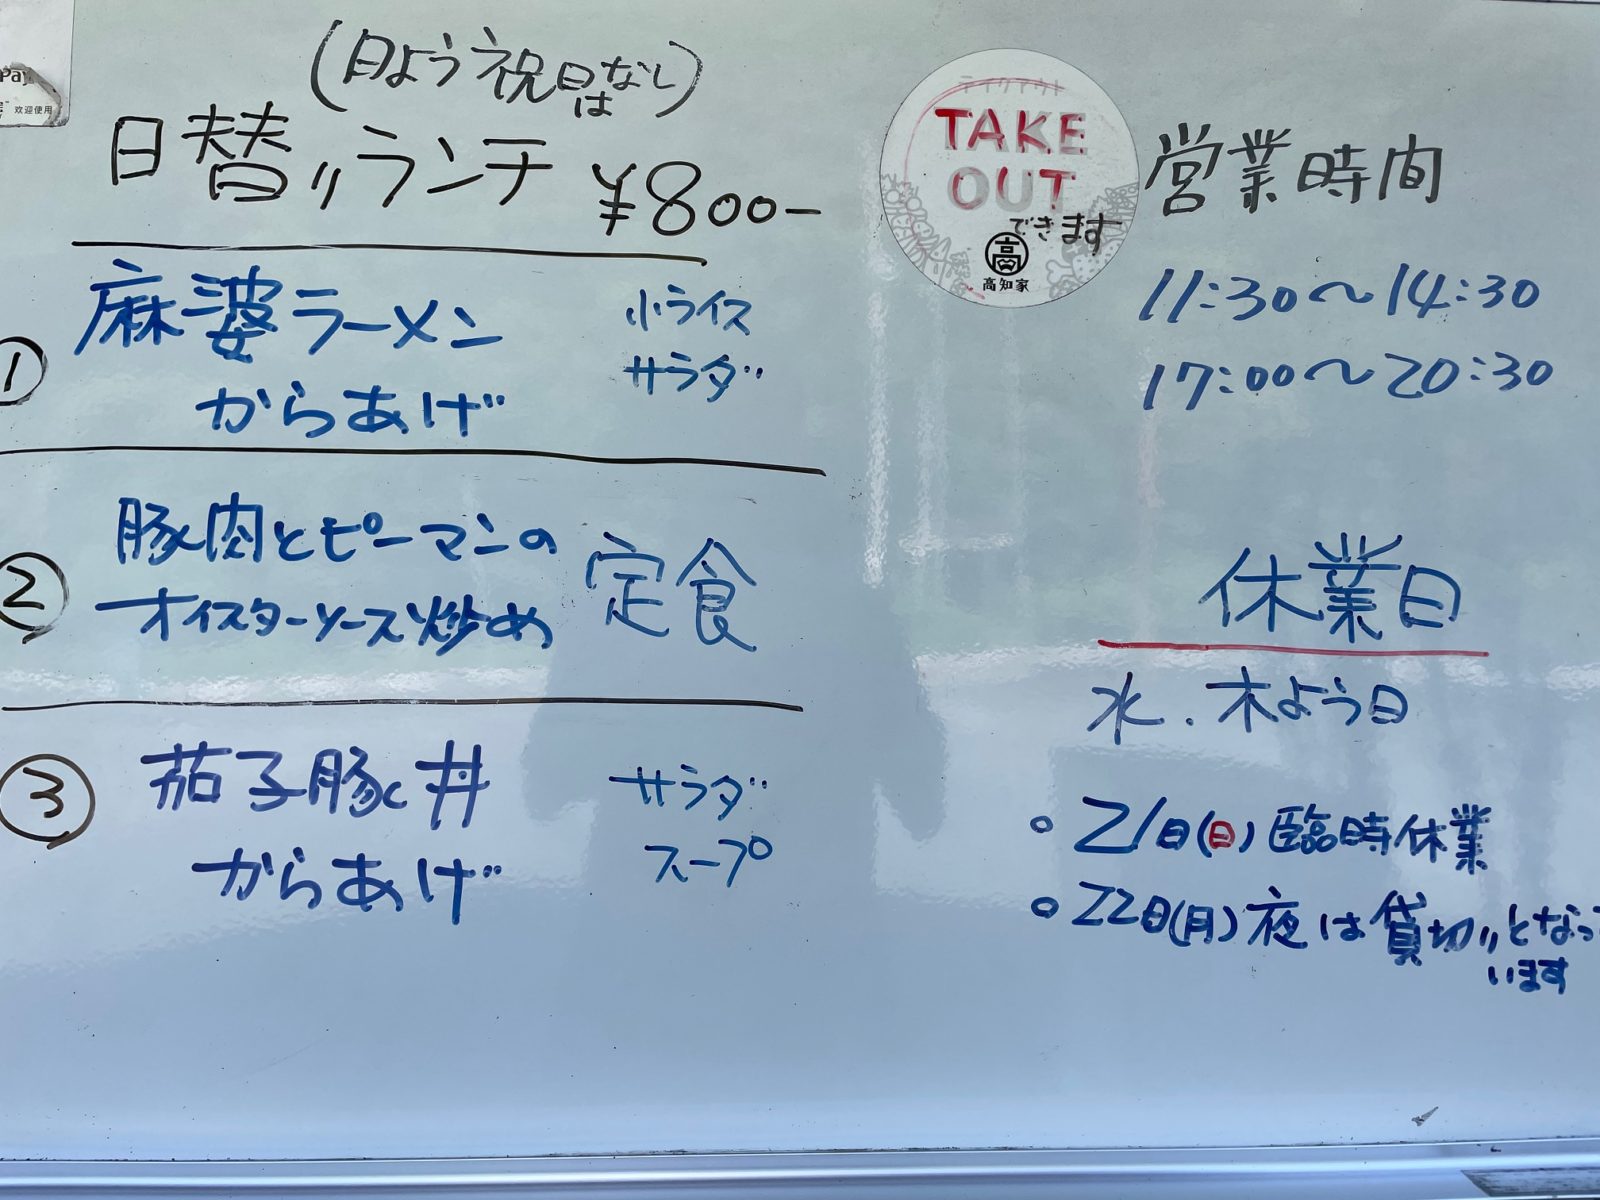 Pay
欢迎使用
(日よう祝日はなし)
日替りランチ ¥800-
① 麻婆ラーメン 小ライス
からあげ サラダ
② 豚肉とピーマンの
オイスターソース炒め 定食
③ 茄子豚丼 サラダ
からあげ スープ
テイクアウト
TAKE
OUT
できます
高
高知家
営業時間
11:30〜14:30
17:00〜20:30
休業日
水.木よう日
○21日(日)臨時休業
○22日(月)夜は貸切りとなって
います